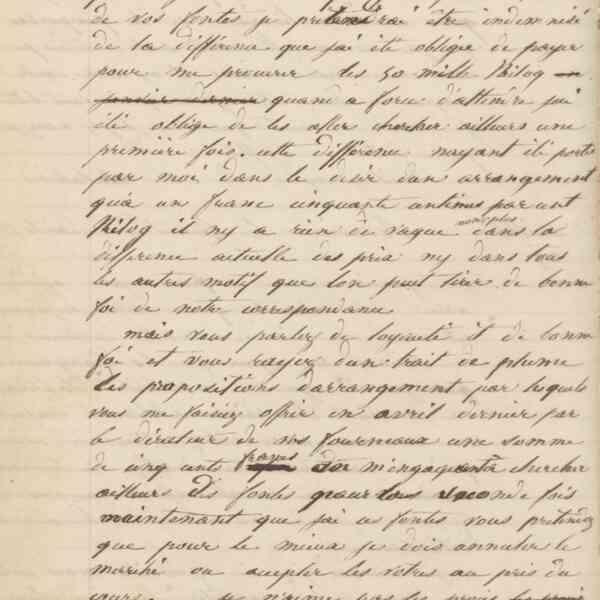 de vos fontes je prétenderai être indemnisé
de la différence que j'ai été obligé de payer
pour me procurer les 50 mille Kilog
quand a force d'attendre j'ai
été obligé de les aller chercher ailleurs une
première fois. cette différence nayant été portée
par moi dans le désir d'un arrangement
qu'a un franc cinquante centimes par cent
Kilog il n'y a rien de vague non plus dans la
différence actuelle des prix ny dans tous
les autres motif que l'on peut tirer de bonne
foi de notre correspondance
mais vous parlez de loyauté et de bonne
foi et vous rayez d'un trait de plume
les propositions d'arrangement par lesquels
vous me faisiez offrir en avril dernier par
le directeur de vos fourneaux une somme
de cinq cents francs en m'engageant a chercher
ailleurs des fontes pour la seconde fois
maintenant que j'ai ces fontes vous prétendez
que pour le mieux je dois annuler le
marché ou accepter les votres au prix du
cours. je n'aime pas les procès